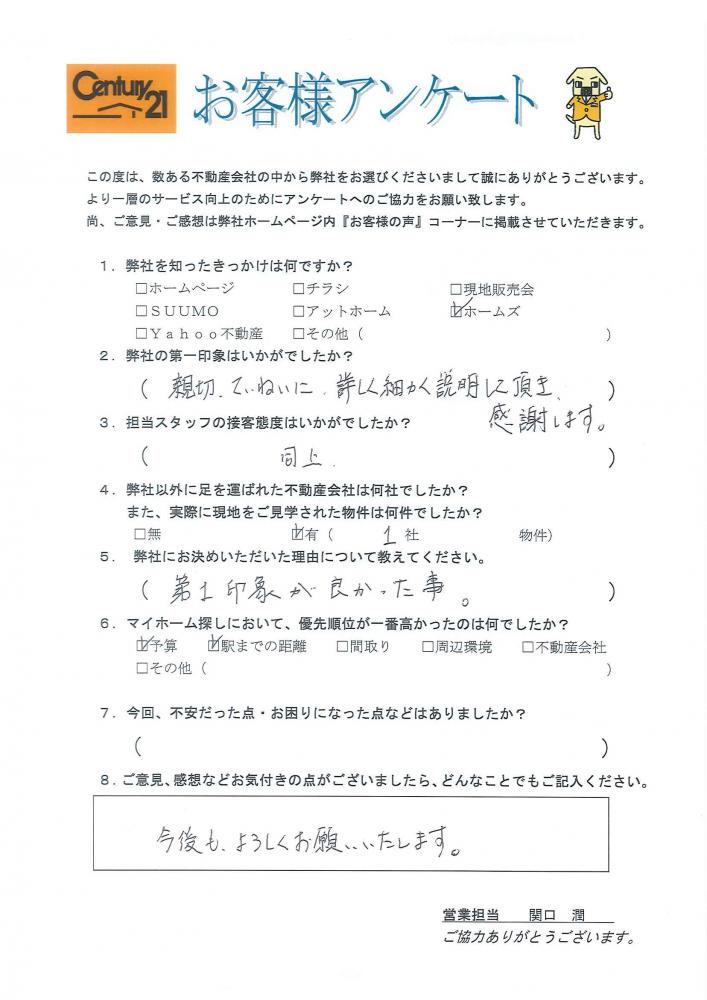 Century 21
お客様アンケート
この度は、数ある不動産会社の中から弊社をお選びくださいまして誠にありがとうございます。
より一層のサービス向上のためにアンケートへのご協力をお願い致します。
尚、ご意見・ご感想は弊社ホームページ内『お客様の声』コーナーに掲載させていただきます。
１．弊社を知ったきっかけは何ですか？
□ホームページ □チラシ □現地販売会
□ＳＵＵＭＯ □アットホーム ☑ホームズ
□Ｙａｈｏｏ不動産 □その他（ ）
２．弊社の第一印象はいかがでしたか？
（ 親切、ていねいに、詳しく細かく説明して頂き、 ）
感謝します。
３．担当スタッフの接客態度はいかがでしたか？
（ 同上． ）
４．弊社以外に足を運ばれた不動産会社は何社でしたか？
また、実際に現地をご見学された物件は何件でしたか？
□無 ☑有（ 1 社 物件）
５． 弊社にお決めいただいた理由について教えてください。
（ 第1印象が良かった事。 ）
６．マイホーム探しにおいて、優先順位が一番高かったのは何でしたか？
☑予算 ☑駅までの距離 □間取り □周辺環境 □不動産会社
□その他（ ）
７．今回、不安だった点・お困りになった点などはありましたか？
（ ）
８．ご意見、感想などお気付きの点がございましたら、どんなことでもご記入ください。
今後も、よろしくお願いいたします。
営業担当 関口 潤
ご協力ありがとうございます。